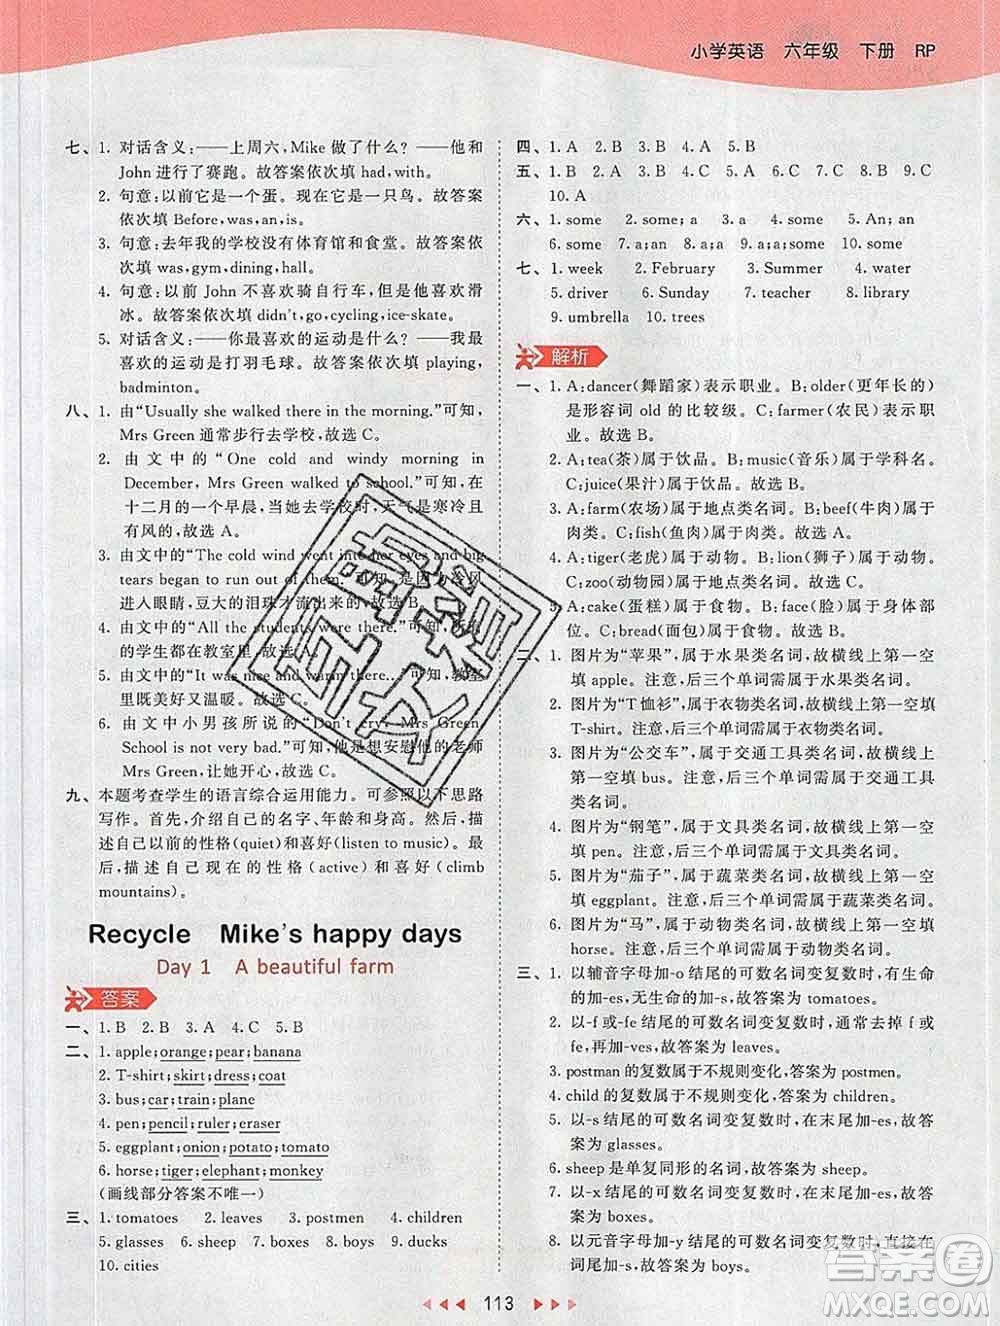 小学英语 六年级 下册 RP
七、1. 对话含义:——上周六,Mike 做了什么? ——他和
John 进行了赛跑。故答案依次填 had,with。
2. 句意:以前它是一个蛋。现在它是一只鸟。故答案
依次填 Before,was,an,is。
3. 句意:去年我的学校没有体育馆和食堂。故答案
依次填 was,gym,dining,hall。
4. 句意:以前 John 不喜欢骑自行车,但他喜欢滑
冰。故答案依次填 didn't,go,cycling,ice-skate。
5. 对话含义:——你最喜欢的运动是什么? ——我最
喜欢的运动是打羽毛球。故答案依次填 playing,
badminton.
八、1. 由“Usually she walked there in the morning.”可知,
Mrs Green 通常步行去学校,故选 C。
2. 由文中的“One cold and windy morning in
December, Mrs Green walked to school.”可知,在
十二月的一个早晨,当她去学校时,天气是寒冷且
有风的,故选 A。
3. 由文中的“The cold wind went into her eyes and big
tears began to run out of them.”可知,是因为冷风
进入眼睛,豆大的泪珠才流出来的,故选 B。
4. 由文中的“All the students were there.”可知,所有
的学生都在教室里,故选 A。
5. 由文中的“It was nice and warm there...”可知,教室
里既美好又温暖。故选 B。
6. 由文中小男孩所说的“Don't cry, Mrs Green.
School is not very bad.”可知,他是想安慰他的老师
Mrs Green,让她开心,故选 C。
九、本题考查学生的语言综合运用能力。可参照以下思路
写作。首先,介绍自己的名字、年龄和身高。然后,描
述自己以前的性格(quiet)和喜好(listen to music)。最
后,描述自己现在的性格(active)和喜好(climb
mountains)。
Recycle Mike's happy days
Day 1 A beautiful farm
答案
一、1. B 2. B 3. A 4. C 5. B
二、1. apple;orange;pear;banana
2. T-shirt;skirt;dress;coat
3. bus;car;train;plane
4. pen;pencil;ruler;eraser
5. eggplant;onion;potato;tomato
6. horse;tiger;elephant;monkey
(画线部分答案不唯一)
三、1. tomatoes 2. leaves 3. postmen 4. children
5. glasses 6. sheep 7. boxes 8. boys 9. ducks
10. cities
四、1. A 2. B 3. C 4. A 5. B
五、1. B 2. A 3. C 4. B 5. A 6. C 7. C 8. B 9. C
10. A
六、1. some 2. some; a 3. a 4. some 5. An; an
6. some 7. a; an 8. a; a 9. a; a 10. some
七、1. week 2. February 3. Summer 4. water
5. driver 6. Sunday 7. teacher 8. sister
9. umbrella 10. trees
解析
一、1. A:dancer(舞蹈家)表示职业。B:older(更年长的)
是形容词 old 的比较级。C:farmer(农民)表示职
业。故选 B。
2. A:tea(茶)属于饮品。B:music(音乐)属于学科名。
C:juice(果汁)属于饮品。故选 B。
3. A:farm(农场)属于地点类名词。B:beef(牛肉)属于
肉类。C:fish(鱼肉)属于肉类。故选 A。
4. A:tiger(老虎)属于动物。B:lion(狮子)属于动物。
C:zoo(动物园)属于地点类名词。故选 C。
5. A:cake(蛋糕)属于食物。B:face(脸)属于身体部
位。C:bread(面包)属于食物。故选 B。
二、1. 图片为“苹果”,属于水果类名词,故横线上第一空
填 apple。注意,后三个单词需属于水果类名词。
2. 图片为“T恤衫”,属于衣物类名词,故横线上第一空填
T-shirt。注意,后三个单词需属于衣物类名词。
3. 图片为“公交车”,属于交通工具类名词,故横线上第
一空填 bus。注意,后三个单词需属于交通工具
类名词。
4. 图片为“钢笔”,属于文具类名词,故横线上第一空
填 pen。注意,后三个单词需属于文具类名词。
5. 图片为“茄子”,属于蔬菜类名词,故横线上第一空
填 eggplant。注意,后三个单词需属于蔬菜类名词。
6. 图片为“马”,属于动物类名词,故横线上第一空填
horse。注意,后三个单词需属于动物类名词。
三、1. 以辅音字母加-o 结尾的可数名词变复数时,有生命
的加-es,无生命的加-s,故答案为 tomatoes。
2. 以-f 或-fe 结尾的可数名词变复数时,应去掉 f 或
fe,再加-ves,故答案为 leaves。
3. postman 的复数属于不规则变化,答案为 postmen。
4. child 的复数属于不规则变化,答案为 children。
5. 以-s 结尾的可数名词变复数时,在末尾加-es,故答
案为 glasses。
6. sheep 是单复同形的名词,故答案为 sheep。
7. 以-x 结尾的可数名词变复数时,在末尾加-es,故答
案为 boxes。
8. 以元音字母加-y 结尾的可数名词变复数时,直接在
词尾加-s,故答案为 boys。
113
答案圈
MXQE.COM